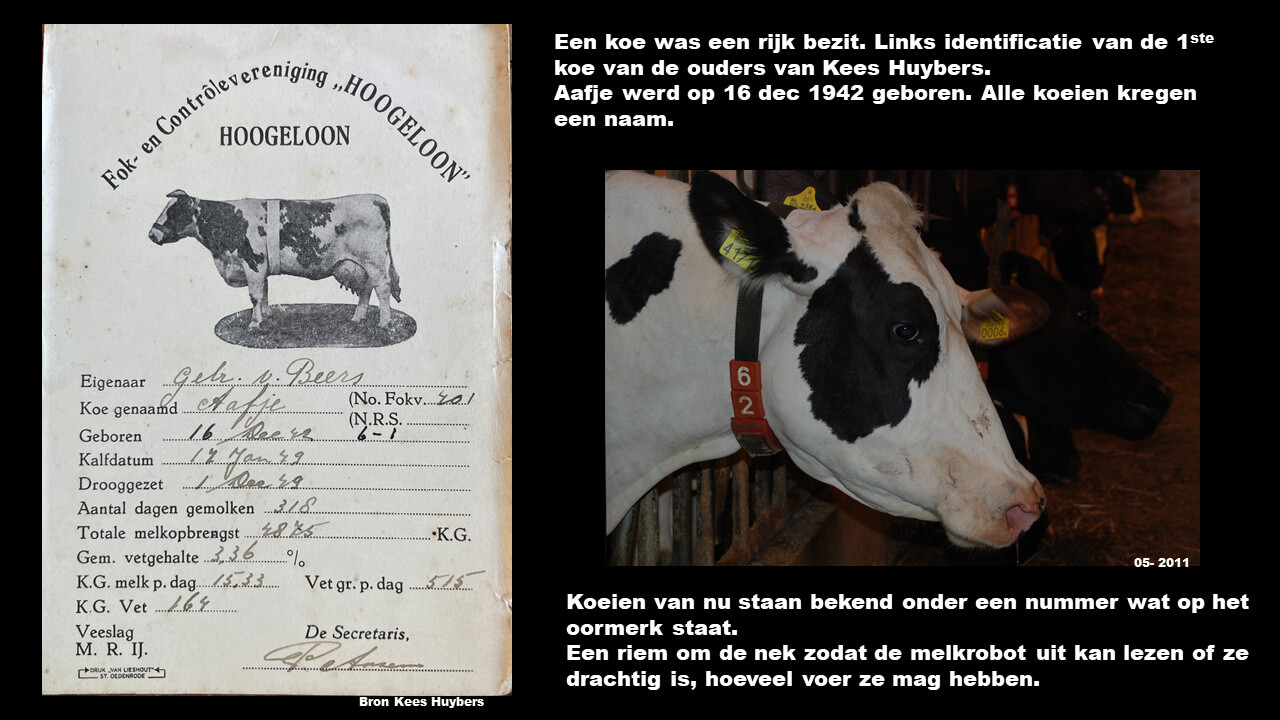 Fok- en Contrôlevereniging „HOOGELOON”
HOOGELOON
Eigenaar Gebr. v. Beers
Koe genaamd Aafje (No. Fokv. 201
(N.R.S.
Geboren 16 Dec 42 6-1
Kalfdatum 17 Jan 49
Drooggezet 1 Dec 49
Aantal dagen gemolken 318
Totale melkopbrengst 4875 K.G.
Gem. vetgehalte 3,36 %
K.G. melk p. dag 15,33 Vet gr. p. dag 515
K.G. Vet 164
Veeslag De Secretaris,
M. R. IJ.
DRUK „VAN LIESHOUT”
ST. OEDENRODE
Bron Kees Huybers
Een koe was een rijk bezit. Links identificatie van de 1ste
koe van de ouders van Kees Huybers.
Aafje werd op 16 dec 1942 geboren. Alle koeien kregen
een naam.
6
2
0006
05- 2011
Koeien van nu staan bekend onder een nummer wat op het
oormerk staat.
Een riem om de nek zodat de melkrobot uit kan lezen of ze
drachtig is, hoeveel voer ze mag hebben.